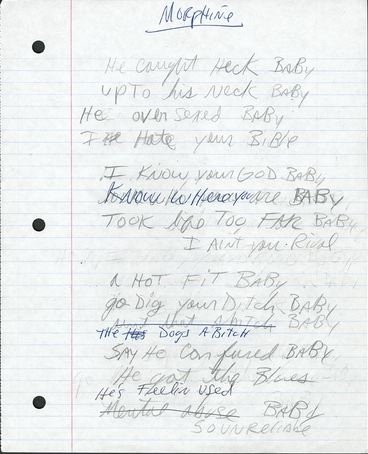 MORPHINE
He caught Heck BABY
UpTo his Neck BABY
He over sexed BABY
I Hate your BiBle
I Know your GOD BABY
Know who you are BABY
TOOK Too FAR BABY
I AiN't your Rival
A HOT FiT BABY
go Dig your Ditch BABY
BABY
THe Dogs A BiTCH
SAY He Confused BABY
He got the Blues
He's Feelin used
Mental abuse BABY
SO UNReliable